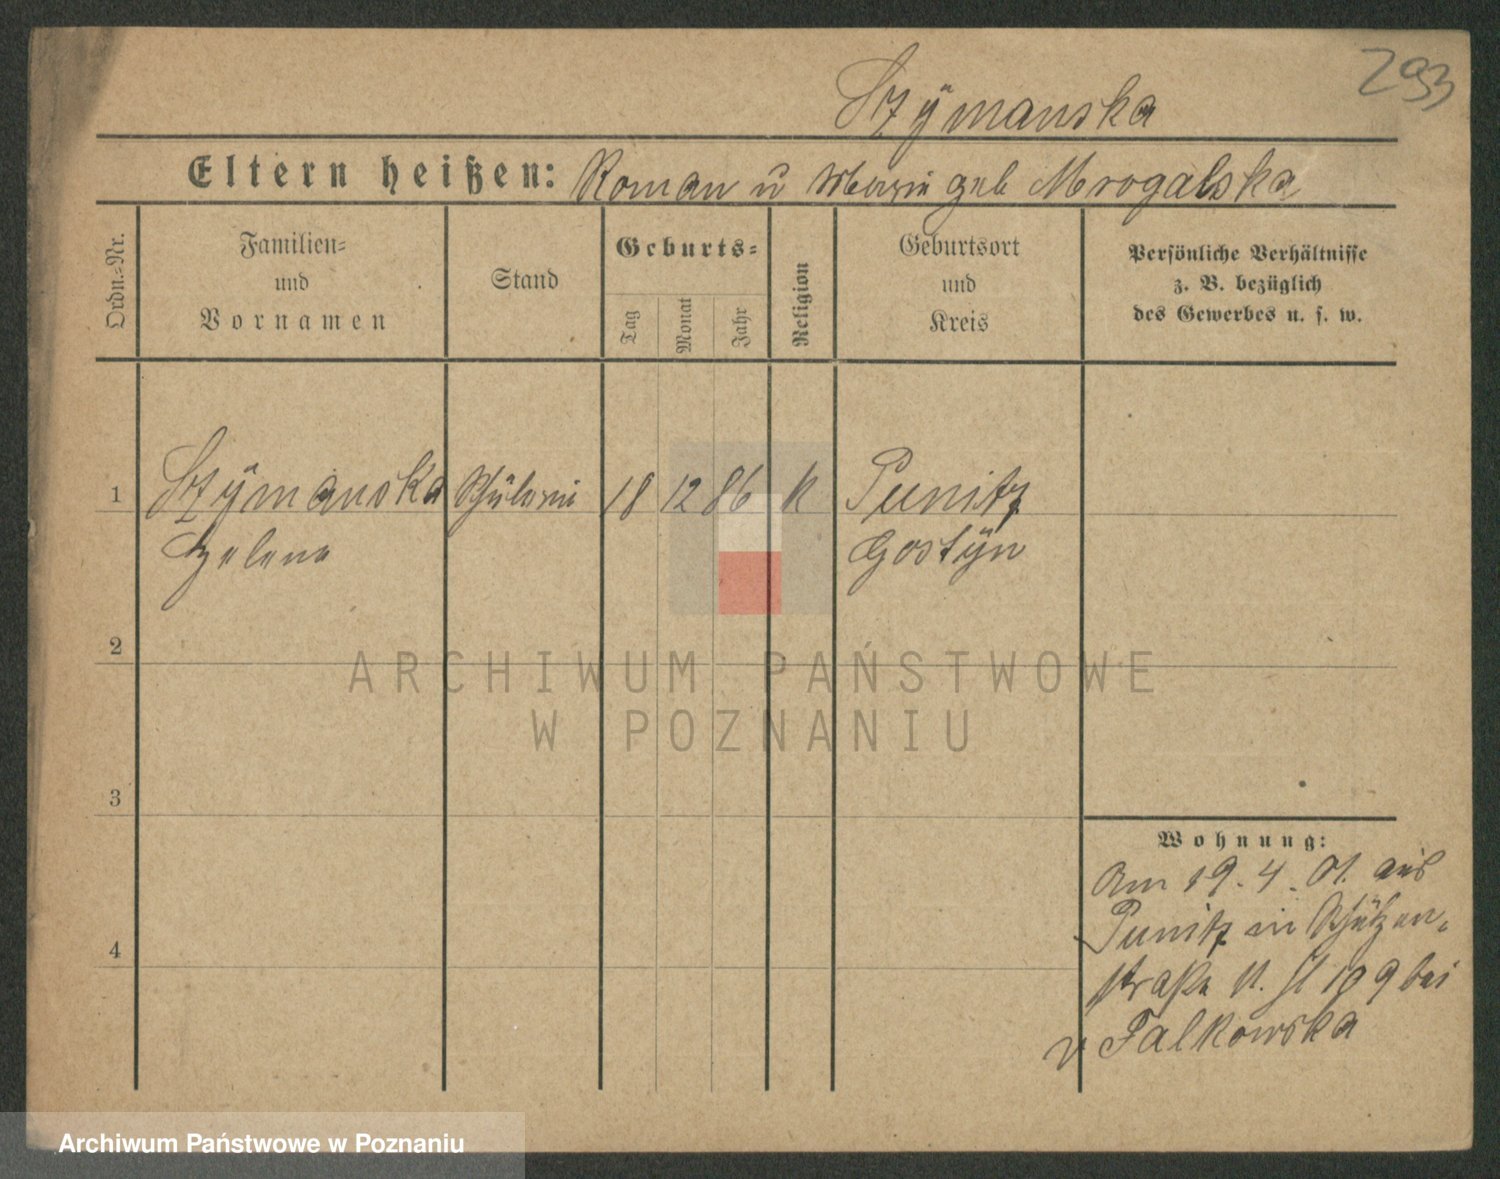 293
Szÿmanska
Eltern heißen: Roman u Maria geb Mrogalska
Ordn.=Nr.
Familien=
und
Vornamen
Stand
Geburts=
Tag
Monat
Jahr
Religion
Geburtsort
und
Kreis
Persönliche Verhältnisse
z. B. bezüglich
des Gewerbes u. s. w.
1 Szÿmanska Schülerin 18 12 86 k Punitz
Helene Gostÿn
2
3
4
Wohnung:
Am 19. 4. 01. aus
Punitz in Schützen-
straße 109 bei
v Falkowska
ARCHIWUM PAŃSTWOWE
W POZNANIU
Archiwum Państwowe w Poznaniu